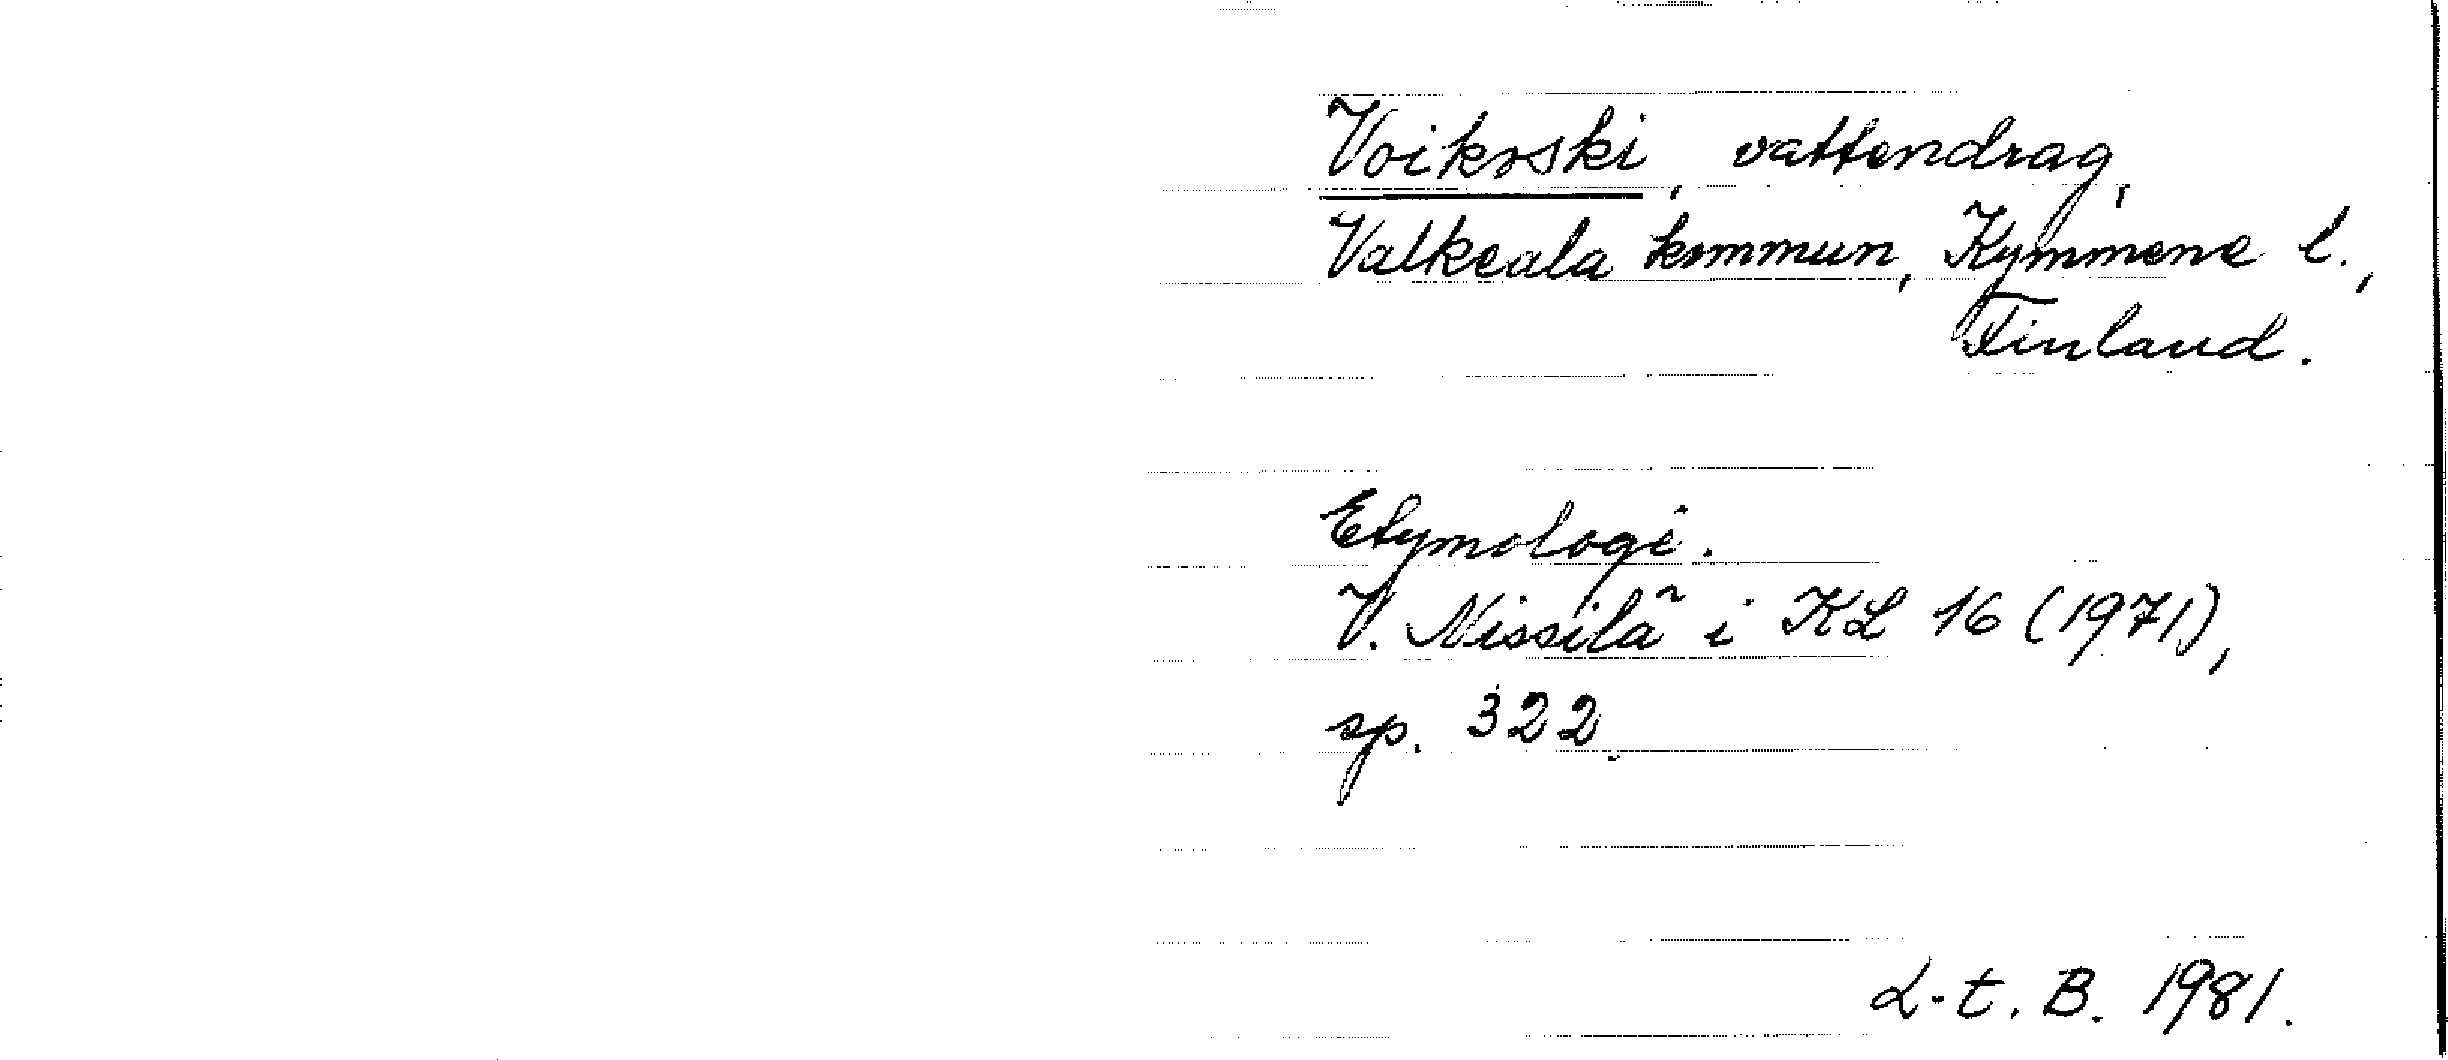 Voikoski, vattendrag,
Valkeala kommun, Kymmene l.,
Finland.
Etymologi.
V. Nissilä i KL 16 (1971),
sp. 322.
L-t. B. 1981.